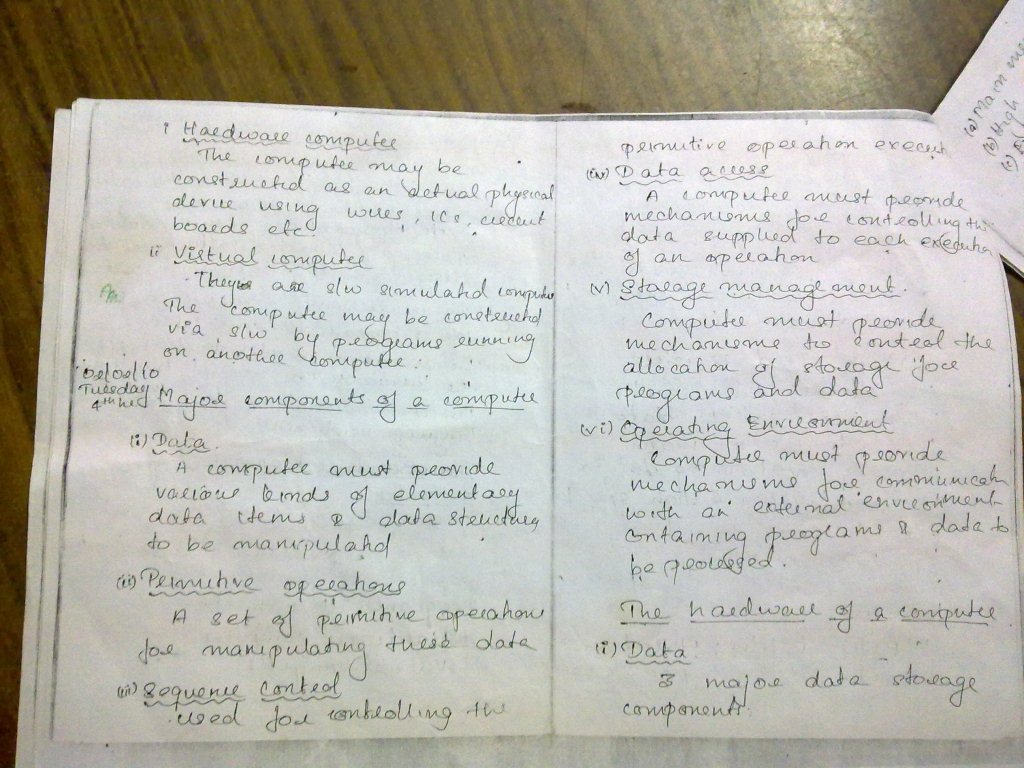 i Hardware computer
The computer may be
constructed as an actual physical
device using wires, ICs, circuit
boards etc.
ii Virtual computer
They are s/w simulated computer
The computer may be constructed
via s/w by programs running
on another computer.
Tuesday
4th hr
Major components of a computer
(i) Data.
A computer must provide
various kinds of elementary
data items & data structure
to be manipulated
(ii) Primitive operations
A set of primitive operations
for manipulating these data
(iii) Sequence control
used for controlling the
primitive operation execut
(iv) Data access
A computer must provide
mechanisms for controlling the
data supplied to each execution
of an operation
(v) Storage management.
Computer must provide
mechanisms to control the
allocation of storage for
programs and data
(vi) Operating Environment
Computer must provide
mechanisms for communicatn
with an external environment
containing programs & data to
be processed.
The hardware of a computer
(i) Data
3 major data storage
components.
(a) Main me
(b) High
(c)